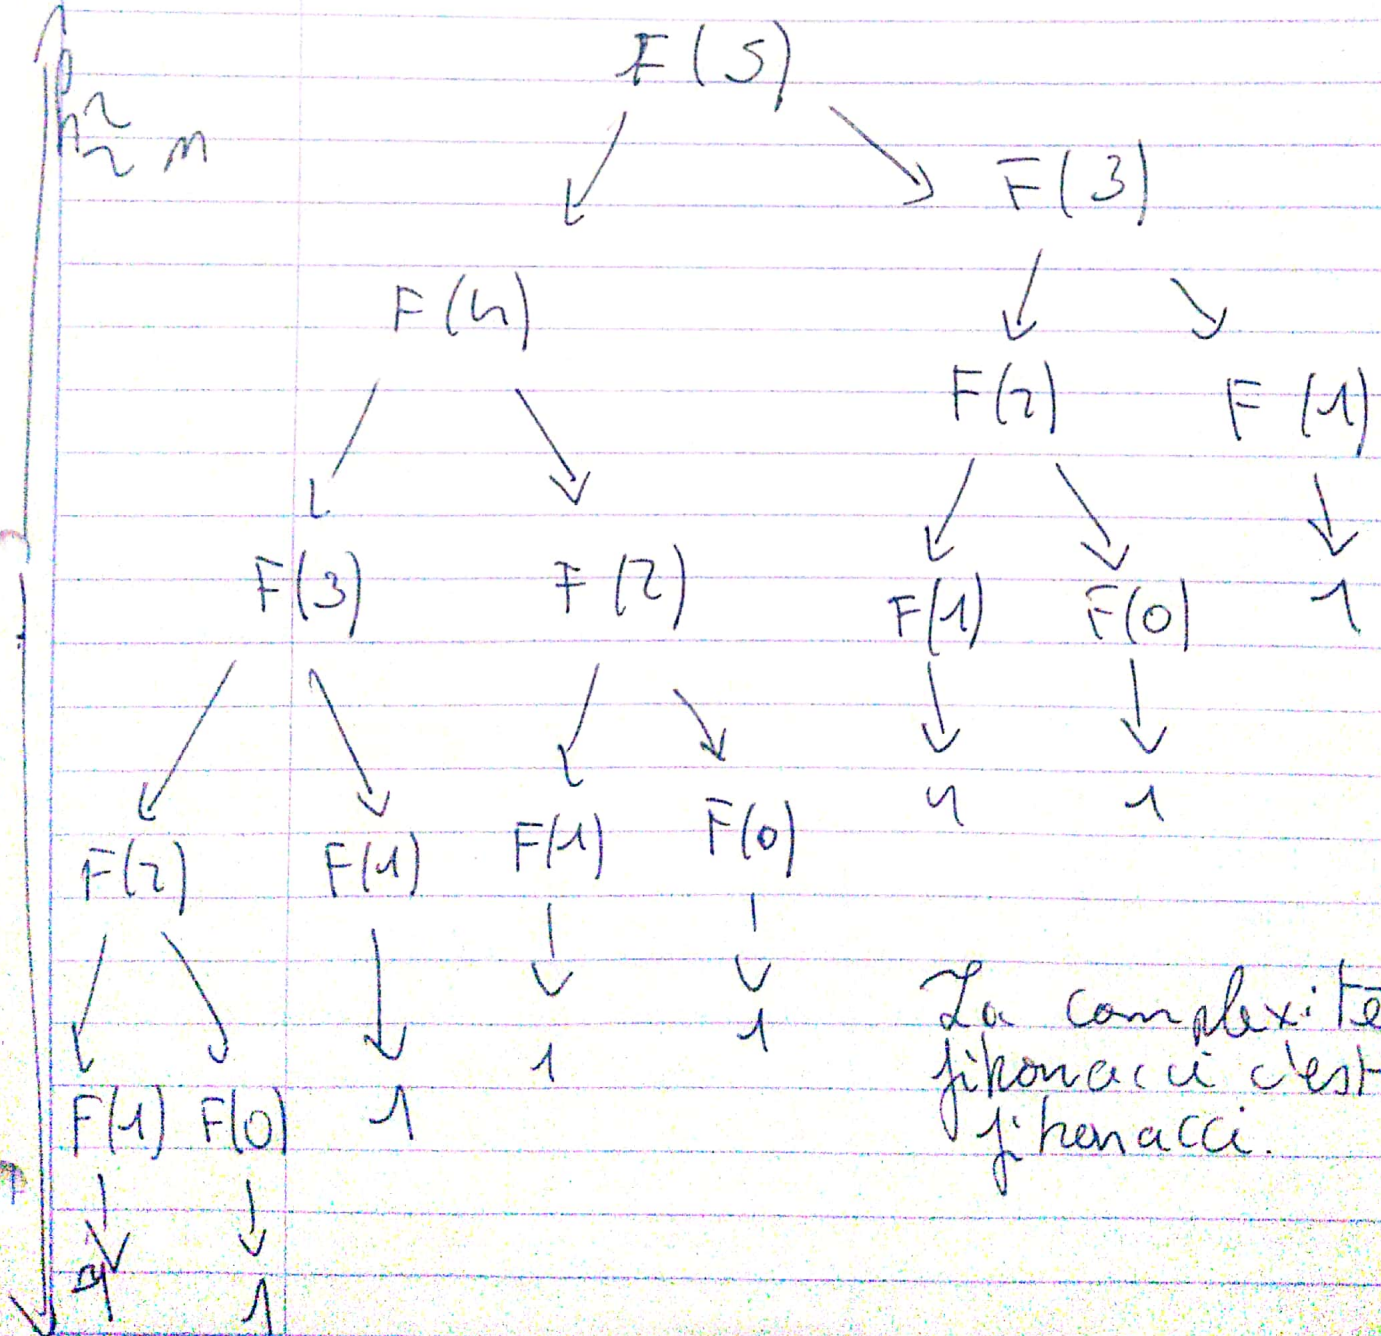 F(5)
h ≈ n
F(3)
F(4)
F(2) F(1)
F(3) F(2) F(1) F(0) 1
1 1
F(2) F(1) F(1) F(0)
1 1
F(1) F(0) 1
1 1
La complexité
fibonacci c'est
fibonacci.